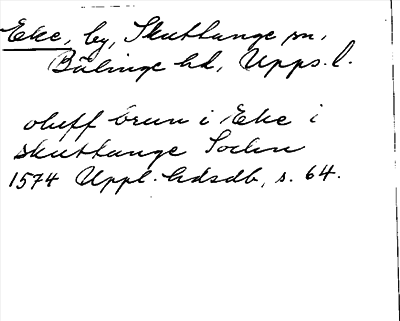 Eke, by, Skuttunge sn,
Bälinge hd, Upps. l.
oluff brun i Eke i
skuttunge Sochn
1574 Uppl. hdsdb, s. 64.